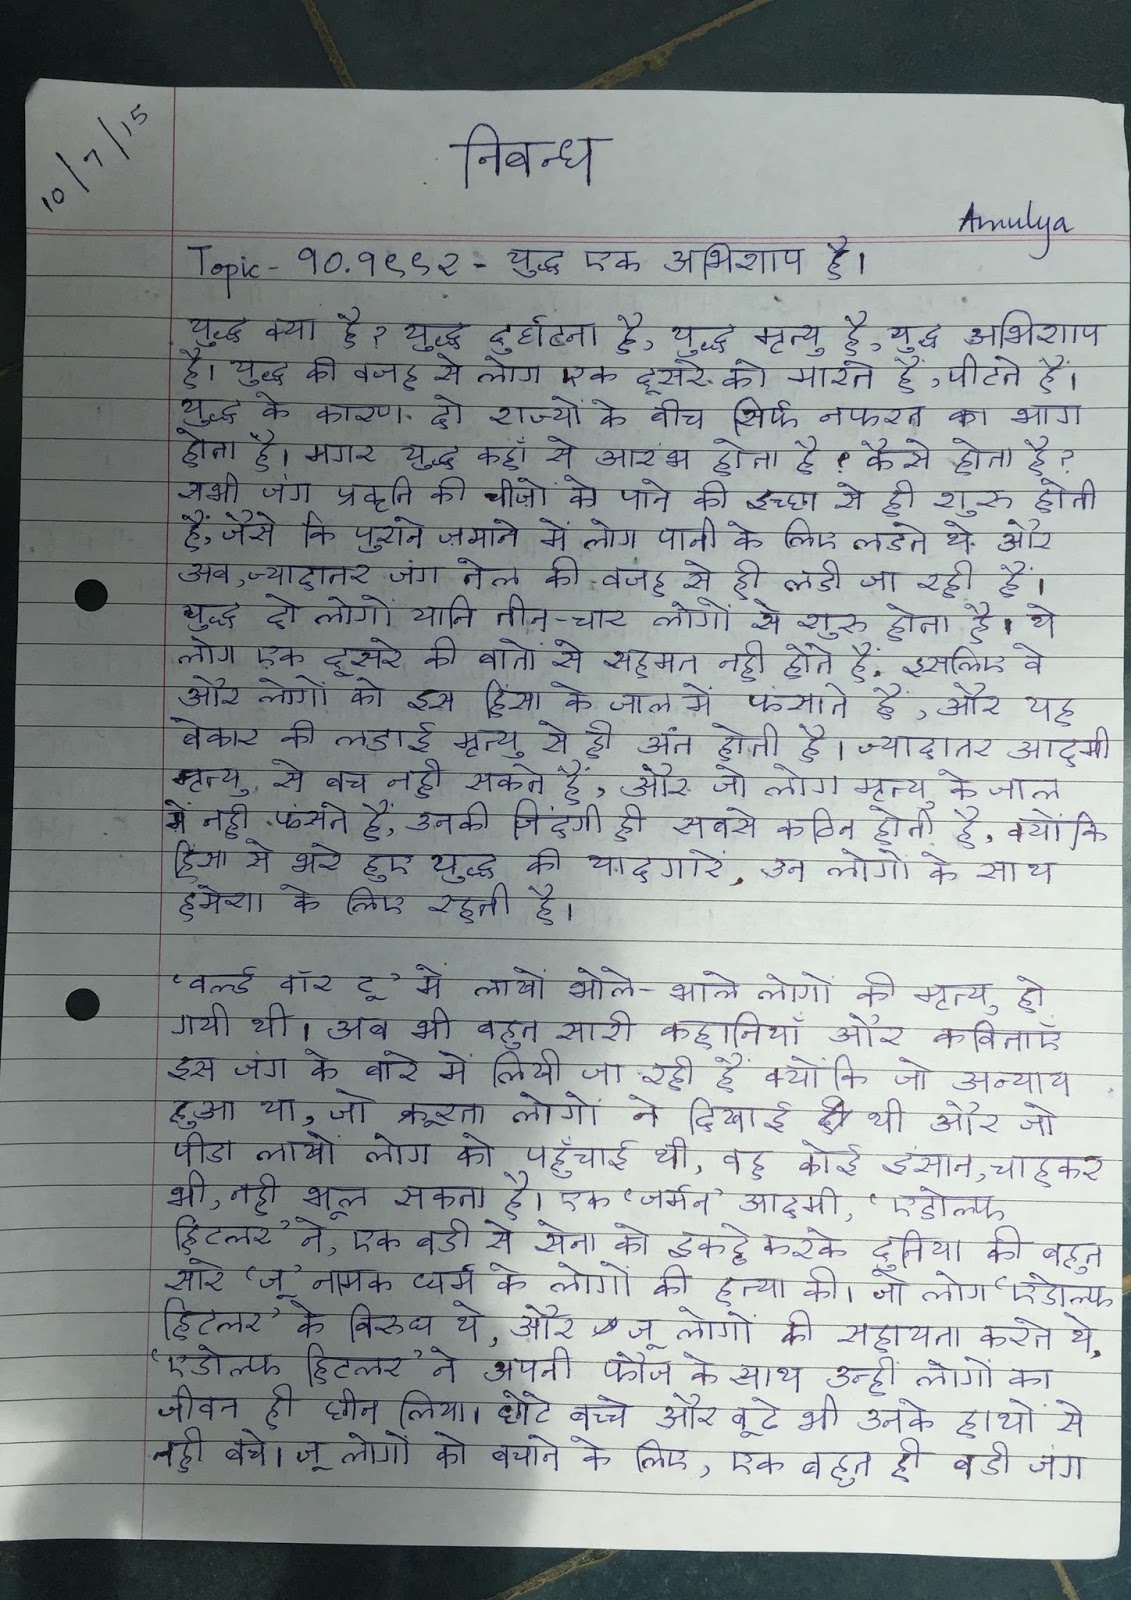 10/7/15
निबन्ध
Amulya
Topic - १०.१९९२ - युद्ध एक अभिशाप है।
युद्ध क्या है? युद्ध दुर्घटना है, युद्ध मृत्यु है, युद्ध अभिशाप
है। युद्ध की वजह से लोग एक दूसरे को मारते हैं, पीटते हैं।
युद्ध के कारण दो राज्यों के बीच सिर्फ नफरत का भाग
होता है। मगर युद्ध कहाँ से आरंभ होता है? कैसे होता है?
सभी जंग प्रकृति की चीज़ों को पाने की इच्छा से ही शुरु होती
हैं, जैसे कि पुराने ज़माने में लोग पानी के लिए लडते थे और
अब, ज्यादातर जंग तेल की वजह से ही लडी जा रही हैं।
युद्ध दो लोगों यानि तीन-चार लोगों से शुरु होता है। ये
लोग एक दूसरे की बातों से सहमत नही होते हैं, इसलिए वे
और लोगों को इस हिंसा के जाल में फंसाते हैं, और यह
बेकार की लडाई मृत्यु से ही अंत होती है। ज्यादातर आदमी
मृत्यु से बच नही सकते हैं, और जो लोग मृत्यु के जाल
में नही फंसते हैं, उनकी जिंदगी ही सबसे कठिन होती है, क्योंकि
हिंसा से भरे हुए युद्ध की यादगारें, उन लोगों के साथ
हमेशा के लिए रहती है।
'वर्ल्ड वॉर टू' में लाखों भोले-भाले लोगों की मृत्यु हो
गयी थी। अब भी बहुत सारी कहानियाँ और कविताएँ
इस जंग के बारे में लिखी जा रही हैं क्योंकि जो अन्याय
हुआ था, जो क्रूरता लोगों ने दिखाई थी और जो
पीडा लाखों लोग को पहुँचाई थी, वह कोई इंसान, चाहकर
भी, नही भूल सकता है। एक 'जर्मन' आदमी, 'एडोल्फ
हिटलर' ने, एक बडी से सेना को इकट्ठे करके दुनिया की बहुत
सारे 'जू' नामक धर्म के लोगों की हत्या की। जो लोग 'एडोल्फ
हिटलर' के विरुध थे, और जू लोगों की सहायता करते थे,
'एडोल्फ हिटलर' ने अपनी फौज के साथ उन्हीं लोगों का
जीवन ही छीन लिया। छोटे बच्चे और बूढे भी उनके हाथों से
नही बचे। जू लोगों को बचाने के लिए, एक बहुत ही बडी जंग